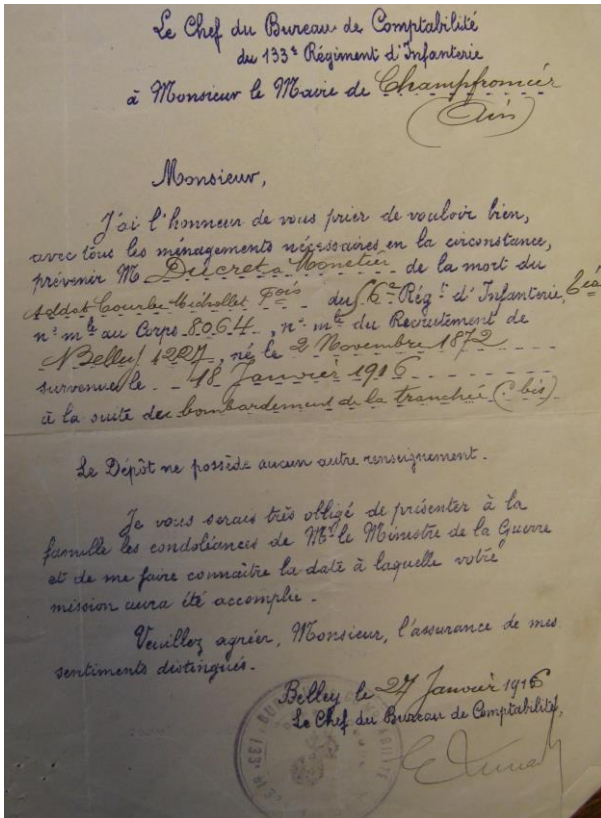 Le Chef du Bureau de Comptabilité
du 133e Régiment d'Infanterie
à Monsieur le Maire de Champfromier
(Ain)
Monsieur,
J'ai l'honneur de vous prier de vouloir bien,
avec tous les ménagements nécessaires en la circonstance,
prévenir M Ducret à Monetier de la mort du
soldat Courbe Michollet Fois du 56e Régt d'Infanterie,
n° mle au Corps 8064, n° mle du Recrutement de
Belley 1227, né le 2 Novembre 1872
survenue le 18 Janvier 1916
à la suite du bombardement de la tranchée (C bis)
Le Dépôt ne possède aucun autre renseignement.
Je vous serais très obligé de présenter à la
famille les condoléances de Mr le Ministre de la Guerre
et de me faire connaître la date à laquelle votre
mission aura été accomplie.
Veuillez agréer, Monsieur, l'assurance de mes
sentiments distingués.
Belley le 27 Janvier 1916
Le Chef du Bureau de Comptabilité,